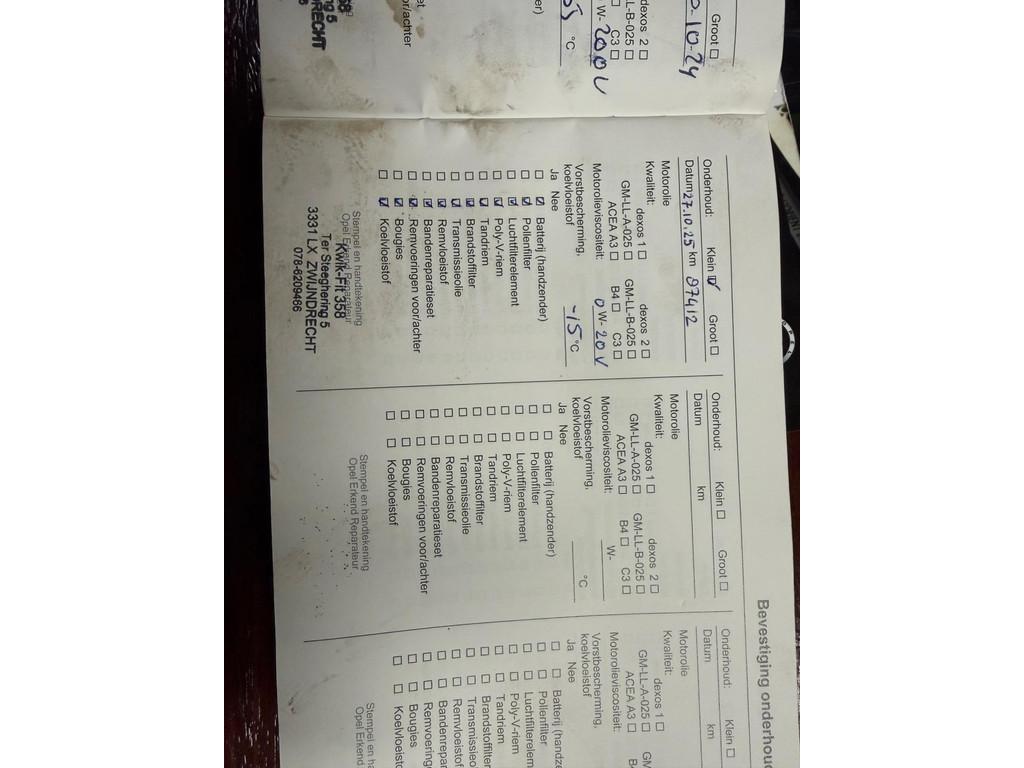 Groot □
0-10-24
dexos 2 □
LL-B-025 □
C3 □
W- 20 0 V
°C
zender)
et
voor/achter
358
ng 5
DRECHT
Bevestiging onderhoud
Onderhoud: Klein ☑ Groot □
Datum 27.10.25 km 87412
Motorolie
Kwaliteit: dexos 1 □ dexos 2 □
GM-LL-A-025 □ GM-LL-B-025 □
ACEA A3 □ B4 □ C3 □
Motorolieviscositeit: 0 W- 20 V
Vorstbescherming,
koelvloeistof -15 °C
Ja Nee
□ ☑ Batterij (handzender)
□ ☑ Pollenfilter
□ ☑ Luchtfilterelement
□ ☑ Poly-V-riem
□ ☑ Tandriem
□ ☑ Brandstoffilter
□ ☑ Transmissieolie
□ ☑ Remvloeistof
□ ☑ Bandenreparatieset
□ ☑ Remvoeringen voor/achter
□ ☑ Bougies
□ ☑ Koelvloeistof
Stempel en handtekening
Opel Erkend Reparateur
Kwik-Fit 358
Ter Steeghering 5
3331 LX ZWIJNDRECHT
078-6209466
Onderhoud: Klein □ Groot □
Datum km
Motorolie
Kwaliteit: dexos 1 □ dexos 2 □
GM-LL-A-025 □ GM-LL-B-025 □
ACEA A3 □ B4 □ C3 □
Motorolieviscositeit: W-
Vorstbescherming,
koelvloeistof °C
Ja Nee
□ □ Batterij (handzender)
□ □ Pollenfilter
□ □ Luchtfilterelement
□ □ Poly-V-riem
□ □ Tandriem
□ □ Brandstoffilter
□ □ Transmissieolie
□ □ Remvloeistof
□ □ Bandenreparatieset
□ □ Remvoeringen voor/achter
□ □ Bougies
□ □ Koelvloeistof
Stempel en handtekening
Opel Erkend Reparateur
Onderhoud: Klein □
Datum km
Motorolie
Kwaliteit: dexos 1 □
GM-LL-A-025 □ GM
ACEA A3 □
Motorolieviscositeit:
Vorstbescherming,
koelvloeistof
Ja Nee
□ □ Batterij (handze
□ □ Pollenfilter
□ □ Luchtfilterelem
□ □ Poly-V-riem
□ □ Tandriem
□ □ Brandstoffilter
□ □ Transmissieo
□ □ Remvloeistof
□ □ Bandenrepar
□ □ Remvoering
□ □ Bougies
□ □ Koelvloeistof
Stempel en ha
Opel Erkend